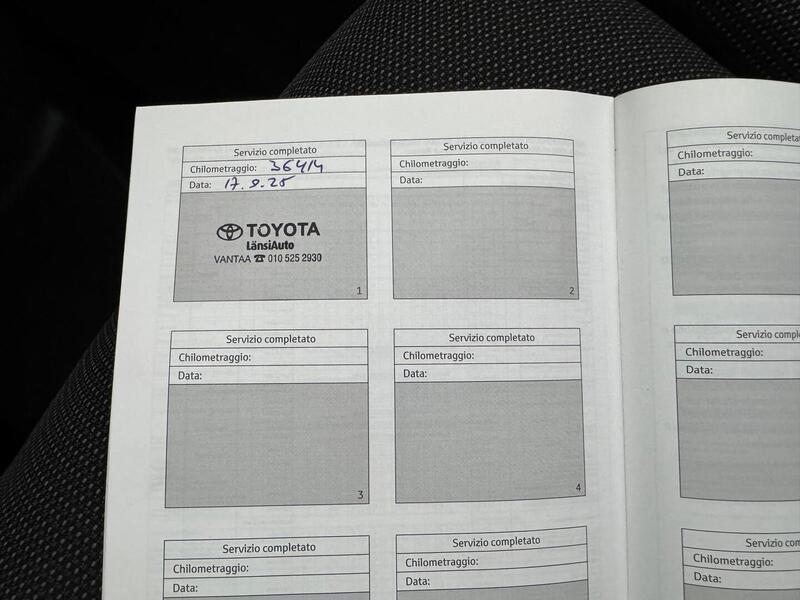 Servizio completato
Chilometraggio: 36414
Data: 17.9.25
TOYOTA
LänsiAuto
VANTAA ☎ 010 525 2930
1
Servizio completato
Chilometraggio:
Data:
2
Servizio completato
Chilometraggio:
Data:
3
Servizio completato
Chilometraggio:
Data:
4
Servizio completato
Chilometraggio:
Data:
Servizio completato
Chilometraggio:
Data:
Servizio completat
Chilometraggio:
Data:
Servizio compl
Chilometraggio:
Data:
Servizio com
Chilometraggio:
Data: